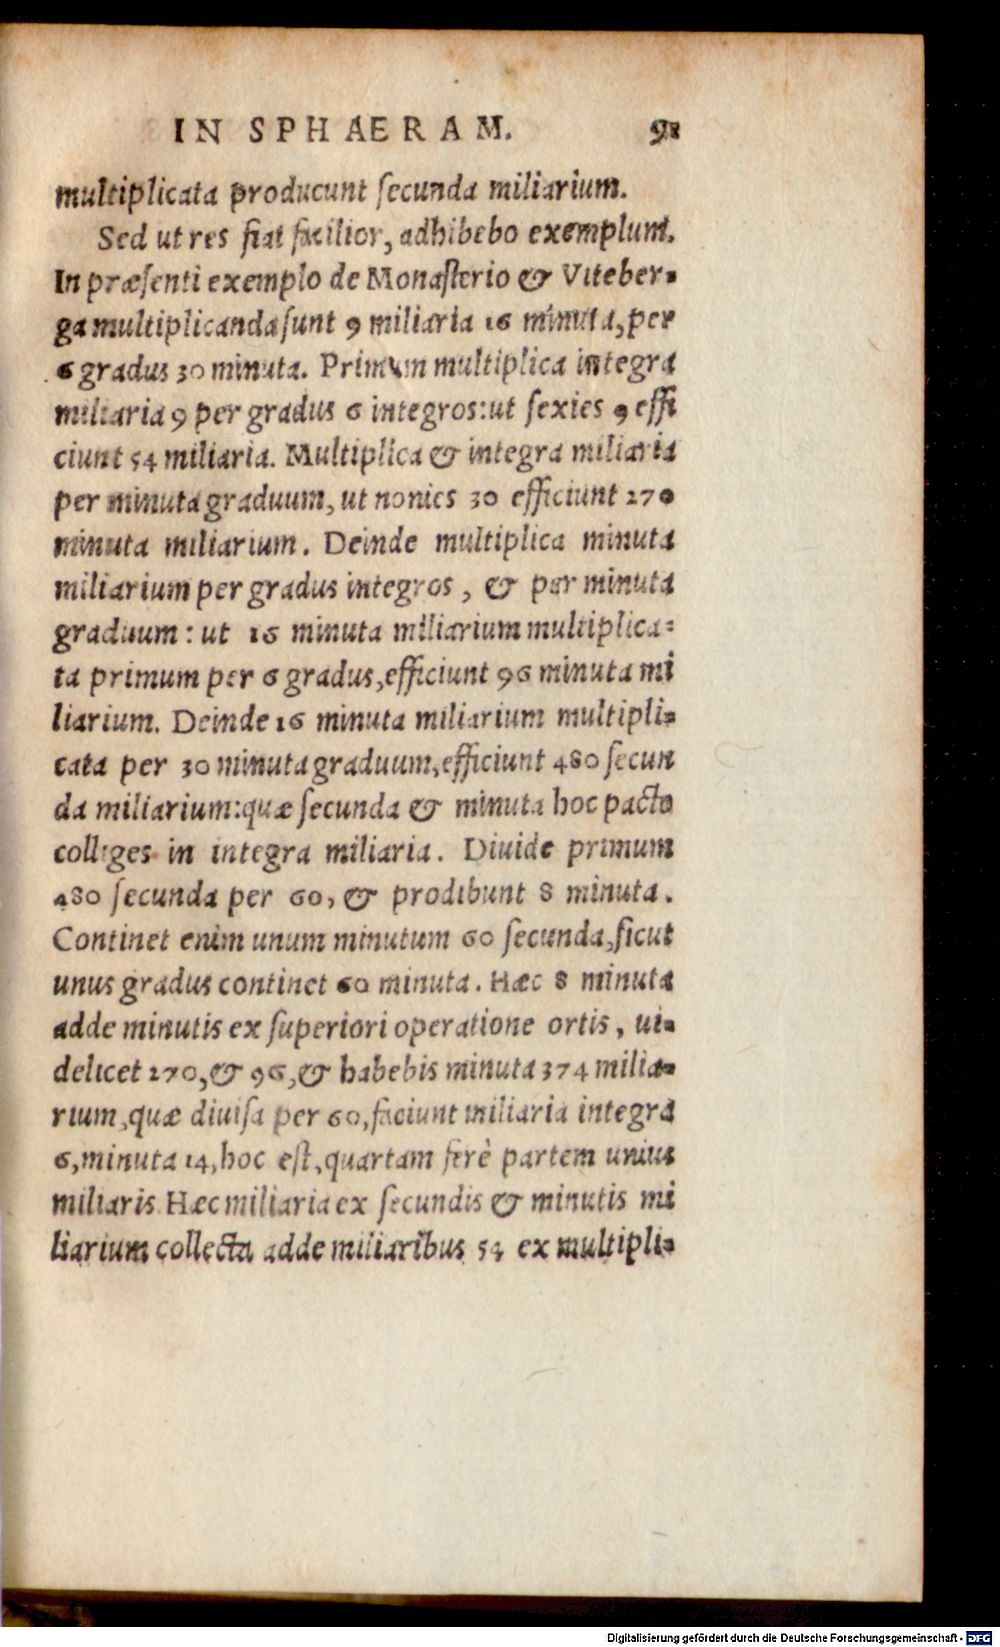 IN SPHAERAM. 91
multiplicata producunt ſecunda miliarium.
Sed ut res fiat facilior, adhibebo exemplum.
In præſenti exemplo de Monaſterio & Viteber-
ga multiplicanda ſunt 9 miliaria 16 minuta, per
6 gradus 30 minuta. Primum multiplica integra
miliaria 9 per gradus 6 integros: ut ſexies 9 effi
ciunt 54 miliaria. Multiplica & integra miliaria
per minuta graduum, ut nonies 30 efficiunt 270
minuta miliarium. Deinde multiplica minuta
miliarium per gradus integros, & per minuta
graduum: ut 16 minuta miliarium multiplica-
ta primum per 6 gradus, efficiunt 96 minuta mi
liarium. Deinde 16 minuta miliarium multipli-
cata per 30 minuta graduum, efficiunt 480 ſecun
da miliarium: quæ ſecunda & minuta hoc pacto
colliges in integra miliaria. Diuide primum
480 ſecunda per 60, & prodibunt 8 minuta.
Continet enim unum minutum 60 ſecunda, ſicut
unus gradus continet 60 minuta. Hæc 8 minuta
adde minutis ex ſuperiori operatione ortis, ui-
delicet 270, & 96, & habebis minuta 374 milia-
rium, quæ diuiſa per 60, faciunt miliaria integra
6, minuta 14, hoc eſt, quartam ferè partem unius
miliaris. Hæc miliaria ex ſecundis & minutis mi
liarium collecta adde miliaribus 54 ex multipli-
Digitalisierung gefördert durch die Deutsche Forschungsgemeinschaft - DFG